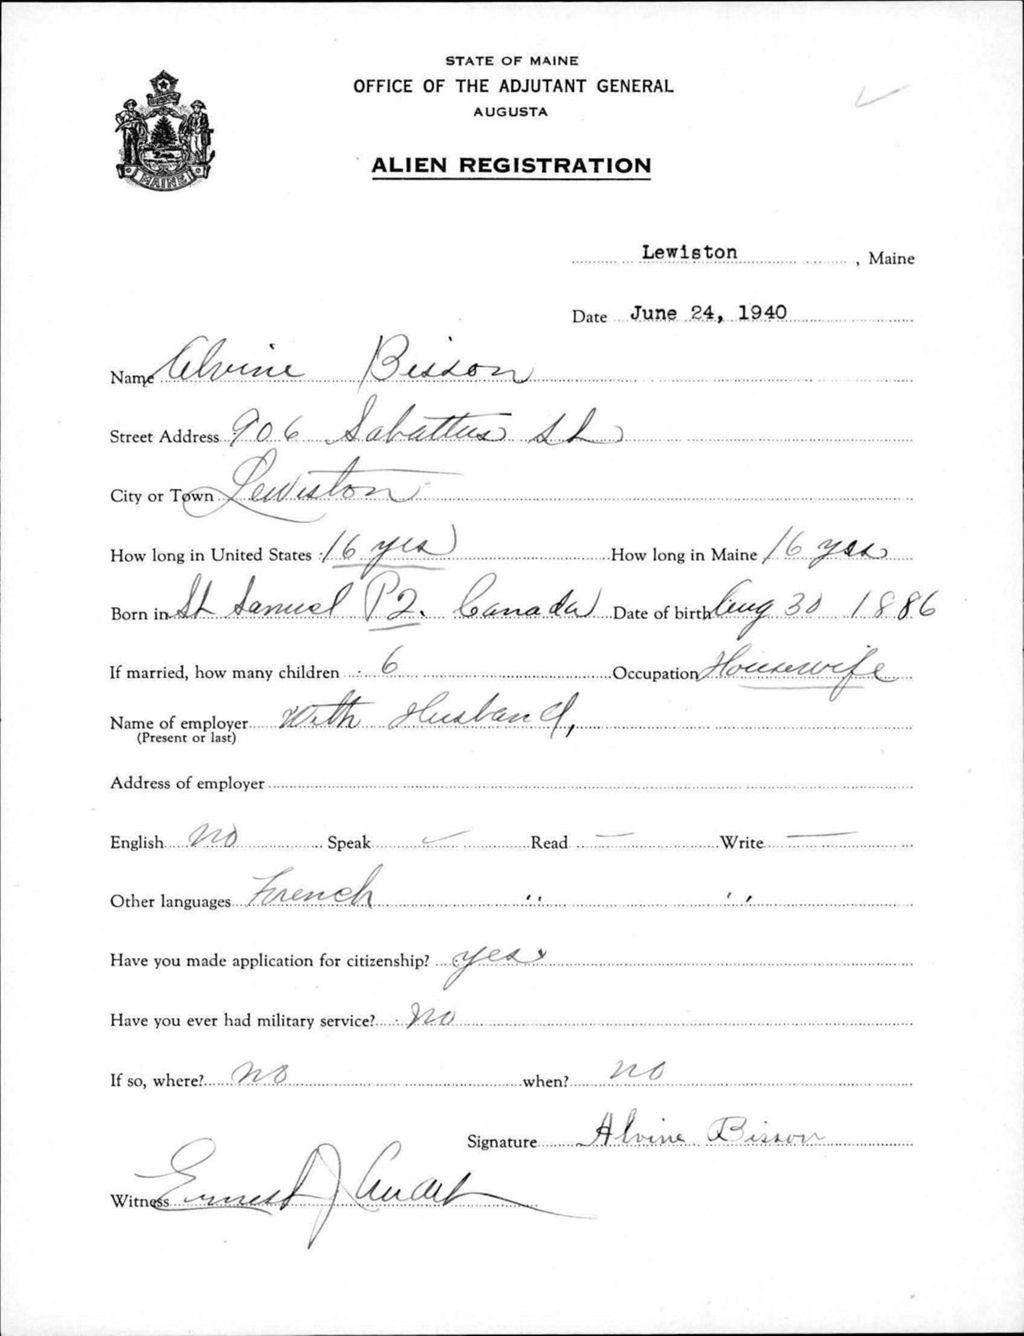 STATE OF MAINE
OFFICE OF THE ADJUTANT GENERAL
AUGUSTA
ALIEN REGISTRATION
MAINE
Lewiston, Maine
Date June 24, 1940
Name Alvine Bisson
Street Address 906 Sabattus St
City or Town Lewiston
How long in United States 16 yrs How long in Maine 16 yrs
Born in St Samuel P2. Canada Date of birth Aug 30 1886
If married, how many children 6 Occupation Housewife
Name of employer With Husband,
(Present or last)
Address of employer
English No Speak ✓ Read — Write —
Other languages French " "
Have you made application for citizenship? yes
Have you ever had military service? No
If so, where? no when? no
Signature Alvine Bisson
Witness Ernest J